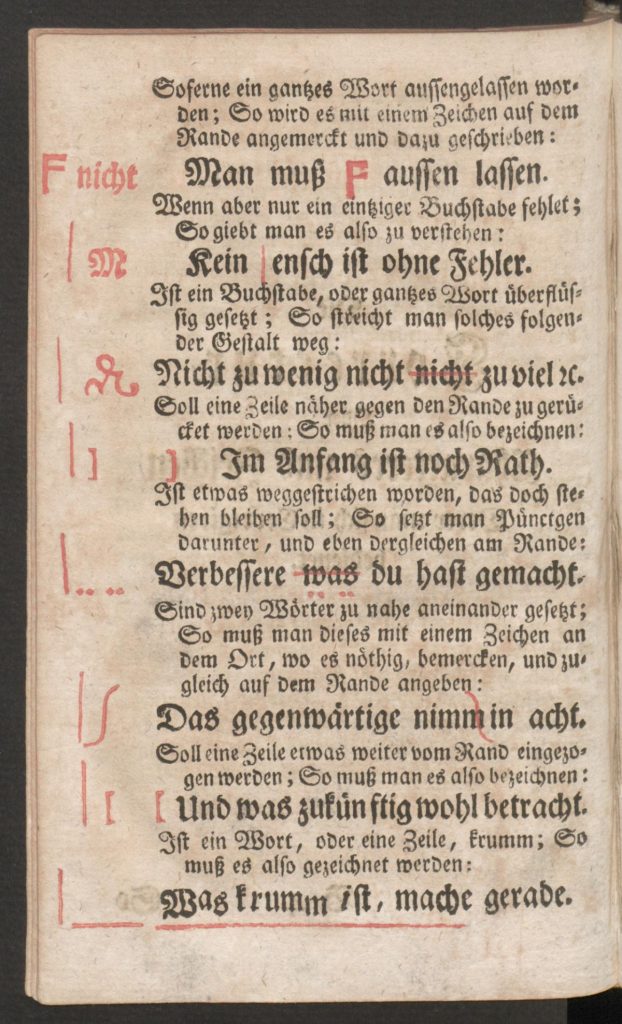 Soferne ein gantzes Wort aussengelassen wor-
den; So wird es mit einem Zeichen auf dem
Rande angemerckt und dazu geschrieben:
F nicht Man muß F aussen lassen.
Wenn aber nur ein eintziger Buchstabe fehlet;
So giebt man es also zu verstehen:
| M Kein | ensch ist ohne Fehler.
Ist ein Buchstabe, oder gantzes Wort überflüs-
sig gesetzt; So streicht man solches folgen-
der Gestalt weg:
| Nicht zu wenig nicht nicht zu viel ꝛc.
Soll eine Zeile näher gegen den Rande zu gerü-
cket werden: So muß man es also bezeichnen:
| ] ] Im Anfang ist noch Rath.
Ist etwas weggestrichen worden, das doch ste-
hen bleiben soll; So setzt man Pünctgen
darunter, und eben dergleichen am Rande:
|.. .. Verbessere was du hast gemacht.
Sind zwey Wörter zu nahe aneinander gesetzt;
So muß man dieses mit einem Zeichen an
dem Ort, wo es nöthig, bemercken, und zu-
gleich auf dem Rande angeben:
| ʃ Das gegenwärtige nimmin acht.
Soll eine Zeile etwas weiter vom Rand eingezo-
gen werden; So muß man es also bezeichnen:
| [ [ Und was zukünftig wohl betracht.
Ist ein Wort, oder eine Zeile, krumm; So
muß es also gezeichnet werden:
| Was krumm ist, mache gerade.